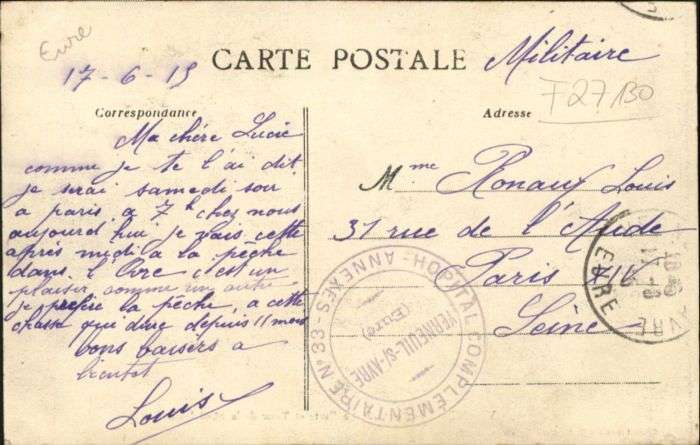 Eure
17-6-15
CARTE POSTALE
Militaire
F27130
Correspondance
Adresse
Ma chère Lucie
comme je te l'ai dit
je serai samedi soir
a paris a 7h chez nous
aujourd hui je vais cette
après midi a la pêche
dans l'Avre c'est un
plaisir comme un autre
je prefère la pêche, a cette
chasse qui dure depuis 11 mois
bons baisers a
bientot
Louis
Mme Ronaux Louis
31 rue de l'Aude
Paris XIV
Seine
HOPITAL COMPLÉMENTAIRE N° 33 - ANNEXES -
VERNEUIL-S-AVRE
(Eure)
AVRE
EURE